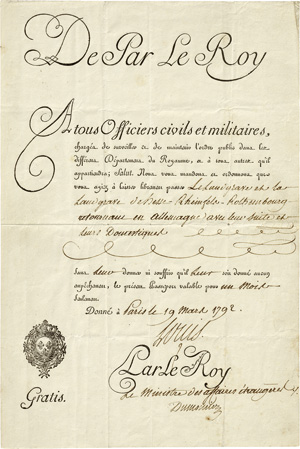 De Par Le Roy
A tous Officiers civils et militaires,
chargés de surveiller & de maintenir l'ordre public dans les
différens Départemens du Royaume, & à tous autres qu'il
appartiendra; Salut. Nous vous mandons et ordonnons que
vous ayez à laisser librement passer Le Landgrave et la
Landgrave de Hesse-Rheinfels-Rothembourg
retournant en Allemagne avec leur suite et
leurs Domestiques
sans leur donner ni souffrir qu'il leur soit donné aucun
empêchement, les présens passeports valables pour un Mois
seulement.
Donné à Paris le 19 mars 1792.
Louis
Par Le Roy
Le Ministre des affaires étrangères
Dumouriez
Gratis.